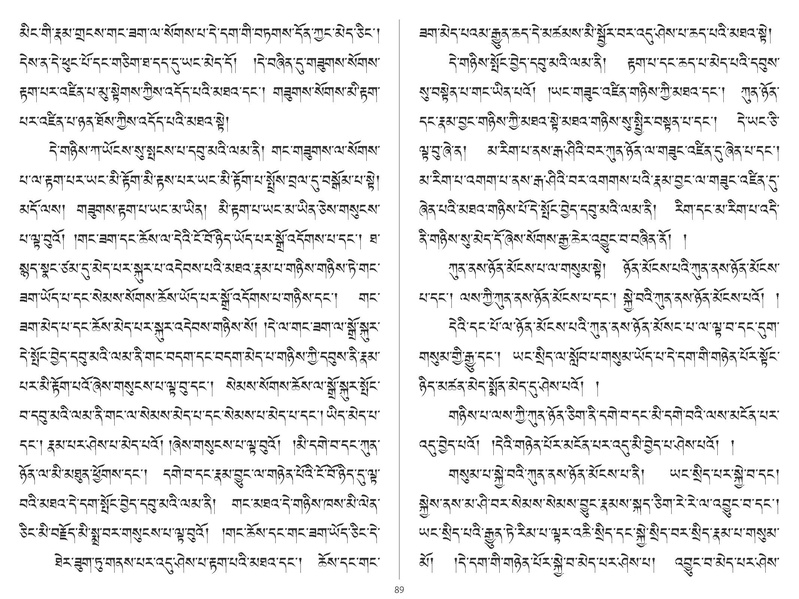 མིང་གི་རྣམ་གྲངས་གང་ཟག་ལ་སོགས་པ་དེ་དག་གི་བཏགས་དོན་ཀྱང་མེད་ཅིང་།
དེས་ན་དེ་ཕུང་པོ་དང་གཅིག་ཐ་དད་དུ་ཡང་མེད་དོ། །དེ་བཞིན་དུ་གཟུགས་སོགས་
རྟག་པར་འཛིན་པ་མུ་སྟེགས་ཀྱིས་འདོད་པའི་མཐའ་དང་། གཟུགས་སོགས་མི་རྟག་
པར་འཛིན་པ་ཉན་ཐོས་ཀྱིས་འདོད་པའི་མཐའ་སྟེ།
དེ་གཉིས་ཀ་ཡོངས་སུ་སྤངས་པ་དབུ་མའི་ལམ་ནི། གང་གཟུགས་ལ་སོགས་
པ་ལ་རྟག་པར་ཡང་མི་རྟོག་མི་རྟས་པར་ཡང་མི་རྟོག་པ་སྤྲོས་བྲལ་དུ་བསྒོམ་པ་སྟེ།
མདོ་ལས། གཟུགས་རྟག་པ་ཡང་མ་ཡིན། མི་རྟག་པ་ཡང་མ་ཡིན་ཅེས་གསུངས་
པ་ལྟ་བུའོ། །གང་ཟག་དང་ཆོས་ལ་དེའི་ངོ་བོ་ཉིད་ཡོད་པར་སྒྲོ་འདོགས་པ་དང་། ཐ་
སྙད་སྣང་ཙམ་དུ་མེད་པར་སྐུར་པ་འདེབས་པའི་མཐའ་རྣམ་པ་གཉིས་གཉིས་ཏེ་གང་
ཟག་ཡོད་པ་དང་སེམས་སོགས་ཆོས་ཡོད་པར་སྒྲོ་འདོགས་པ་གཉིས་དང་། གང་
ཟག་མེད་པ་དང་ཆོས་མེད་པར་སྐུར་འདེབས་གཉིས་སོ། །དེ་ལ་གང་ཟག་ལ་སྒྲོ་སྐུར་
དེ་སྤོང་བྱེད་དབུ་མའི་ལམ་ནི་གང་བདག་དང་བདག་མེད་པ་གཉིས་ཀྱི་དབུས་ནི་རྣམ་
པར་མི་རྟོག་པའོ་ཞེས་གསུངས་པ་ལྟ་བུ་དང་། སེམས་སོགས་ཆོས་ལ་སྒྲོ་སྐུར་སྤོང་
བ་དབུ་མའི་ལམ་ནི་གང་ལ་སེམས་མེད་པ་དང་སེམས་པ་མེད་པ་དང་། ཡིད་མེད་པ་
དང་། རྣམ་པར་ཤེས་པ་མེད་པའོ། །ཞེས་གསུངས་པ་ལྟ་བུའོ། །མི་དགེ་བ་དང་ཀུན་
ཉོན་ལ་མི་མཐུན་ཕྱོགས་དང་། དགེ་བ་དང་རྣམ་བྱུང་ལ་གཉེན་པོའི་ངོ་བོ་ཉིད་དུ་ལྟ་
བའི་མཐའ་དེ་དག་སྤོང་བྱེད་དབུ་མའི་ལམ་ནི། གང་མཐའ་དེ་གཉིས་ཁས་མི་ལེན་
ཅིང་མི་བརྗོད་མི་སྨྲ་བར་གསུངས་པ་ལྟ་བུའོ། །གང་ཆོས་དང་གང་ཟག་ཡོད་ཅིང་དེ་
ཐེར་ཟུག་ཏུ་གནས་པར་འདུ་ཤེས་པ་རྟག་པའི་མཐའ་དང་། ཆོས་དང་གང་
ཟག་མེད་པའམ་རྒྱུན་ཆད་དེ་མཚམས་མི་སྦྱོར་བར་འདུ་ཤེས་པ་ཆད་པའི་མཐའ་སྟེ།
དེ་གཉིས་སྤོང་བྱེད་དབུ་མའི་ལམ་ནི། རྟག་པ་དང་ཆད་པ་མེད་པའི་དབུས་
སུ་བསྟེན་པ་གང་ཡིན་པའོ། །ཡང་གཟུང་འཛིན་གཉིས་ཀྱི་མཐའ་དང་། ཀུན་ཉོན་
དང་རྣམ་བྱང་གཉིས་ཀྱི་མཐའ་སྟེ་མཐའ་གཉིས་སུ་སྤྱིར་བསྟན་པ་དང་། དེ་ཡང་ཅི་
ལྟ་བུ་ཞེ་ན། མ་རིག་པ་ནས་རྒ་ཤིའི་བར་ཀུན་ཉོན་ལ་གཟུང་འཛིན་དུ་ཞེན་པ་དང་།
མ་རིག་པ་འགག་པ་ནས་རྒ་ཤིའི་བར་འགགས་པའི་རྣམ་བྱང་ལ་གཟུང་འཛིན་དུ་
ཞེན་པའི་མཐའ་གཉིས་པོ་དེ་སྤོང་བྱེད་དབུ་མའི་ལམ་ནི། རིག་དང་མ་རིག་པ་འདི་
ནི་གཉིས་སུ་མེད་དོ་ཞེས་སོགས་རྒྱ་ཆེར་འབྱུང་བ་བཞིན་ནོ། །
ཀུན་ནས་ཉོན་མོངས་པ་ལ་གསུམ་སྟེ། ཉོན་མོངས་པའི་ཀུན་ནས་ཉོན་མོངས་
པ་དང་། ལས་ཀྱི་ཀུན་ནས་ཉོན་མོངས་པ་དང་། སྐྱེ་བའི་ཀུན་ནས་ཉོན་མོངས་པའོ། །
དེའི་དང་པོ་ལ་ཉོན་མོངས་པའི་ཀུན་ནས་ཉོན་མོསང་པ་ལ་ལྟ་བ་དང་དུག་
གསུམ་གྱི་རྒྱུ་དང་། ཡང་སྲིད་ལ་སློབ་པ་གསུམ་ཡོད་པ་དེ་དག་གི་གཉེན་པོར་སྟོང་
ཉིད་མཚན་མེད་སྨོན་མེད་དུ་ཤེས་པའོ། །
གཉིས་པ་ལས་ཀྱི་ཀུན་ཉོན་ཅིག་ནི་དགེ་བ་དང་མི་དགེ་བའི་ལས་མངོན་པར་
འདུ་བྱེད་པའོ། །དེའི་གཉེན་པོར་མངོན་པར་འདུ་མི་བྱེད་པ་ཤེས་པའོ། །
གསུམ་པ་སྐྱེ་བའི་ཀུན་ནས་ཉོན་མོངས་པ་ནི། ཡང་སྲིད་པར་སྐྱེ་བ་དང་།
སྐྱེས་ནས་མ་ཤི་བར་སེམས་སེམས་བྱུང་རྣམས་སྐད་ཅིག་རེ་རེ་ལ་འབྱུང་བ་དང་།
ཡང་སྲིད་པའི་རྒྱུན་ཏེ་རིམ་པ་ལྟར་འཆི་སྲིད་དང་སྐྱེ་སྲིད་བར་སྲིད་རྣམ་པ་གསུམ་
མོ། །དེ་དག་གི་གཉེན་པོར་སྐྱེ་བ་མེད་པར་ཤེས་པ། འབྱུང་བ་མེད་པར་ཤེས་
89